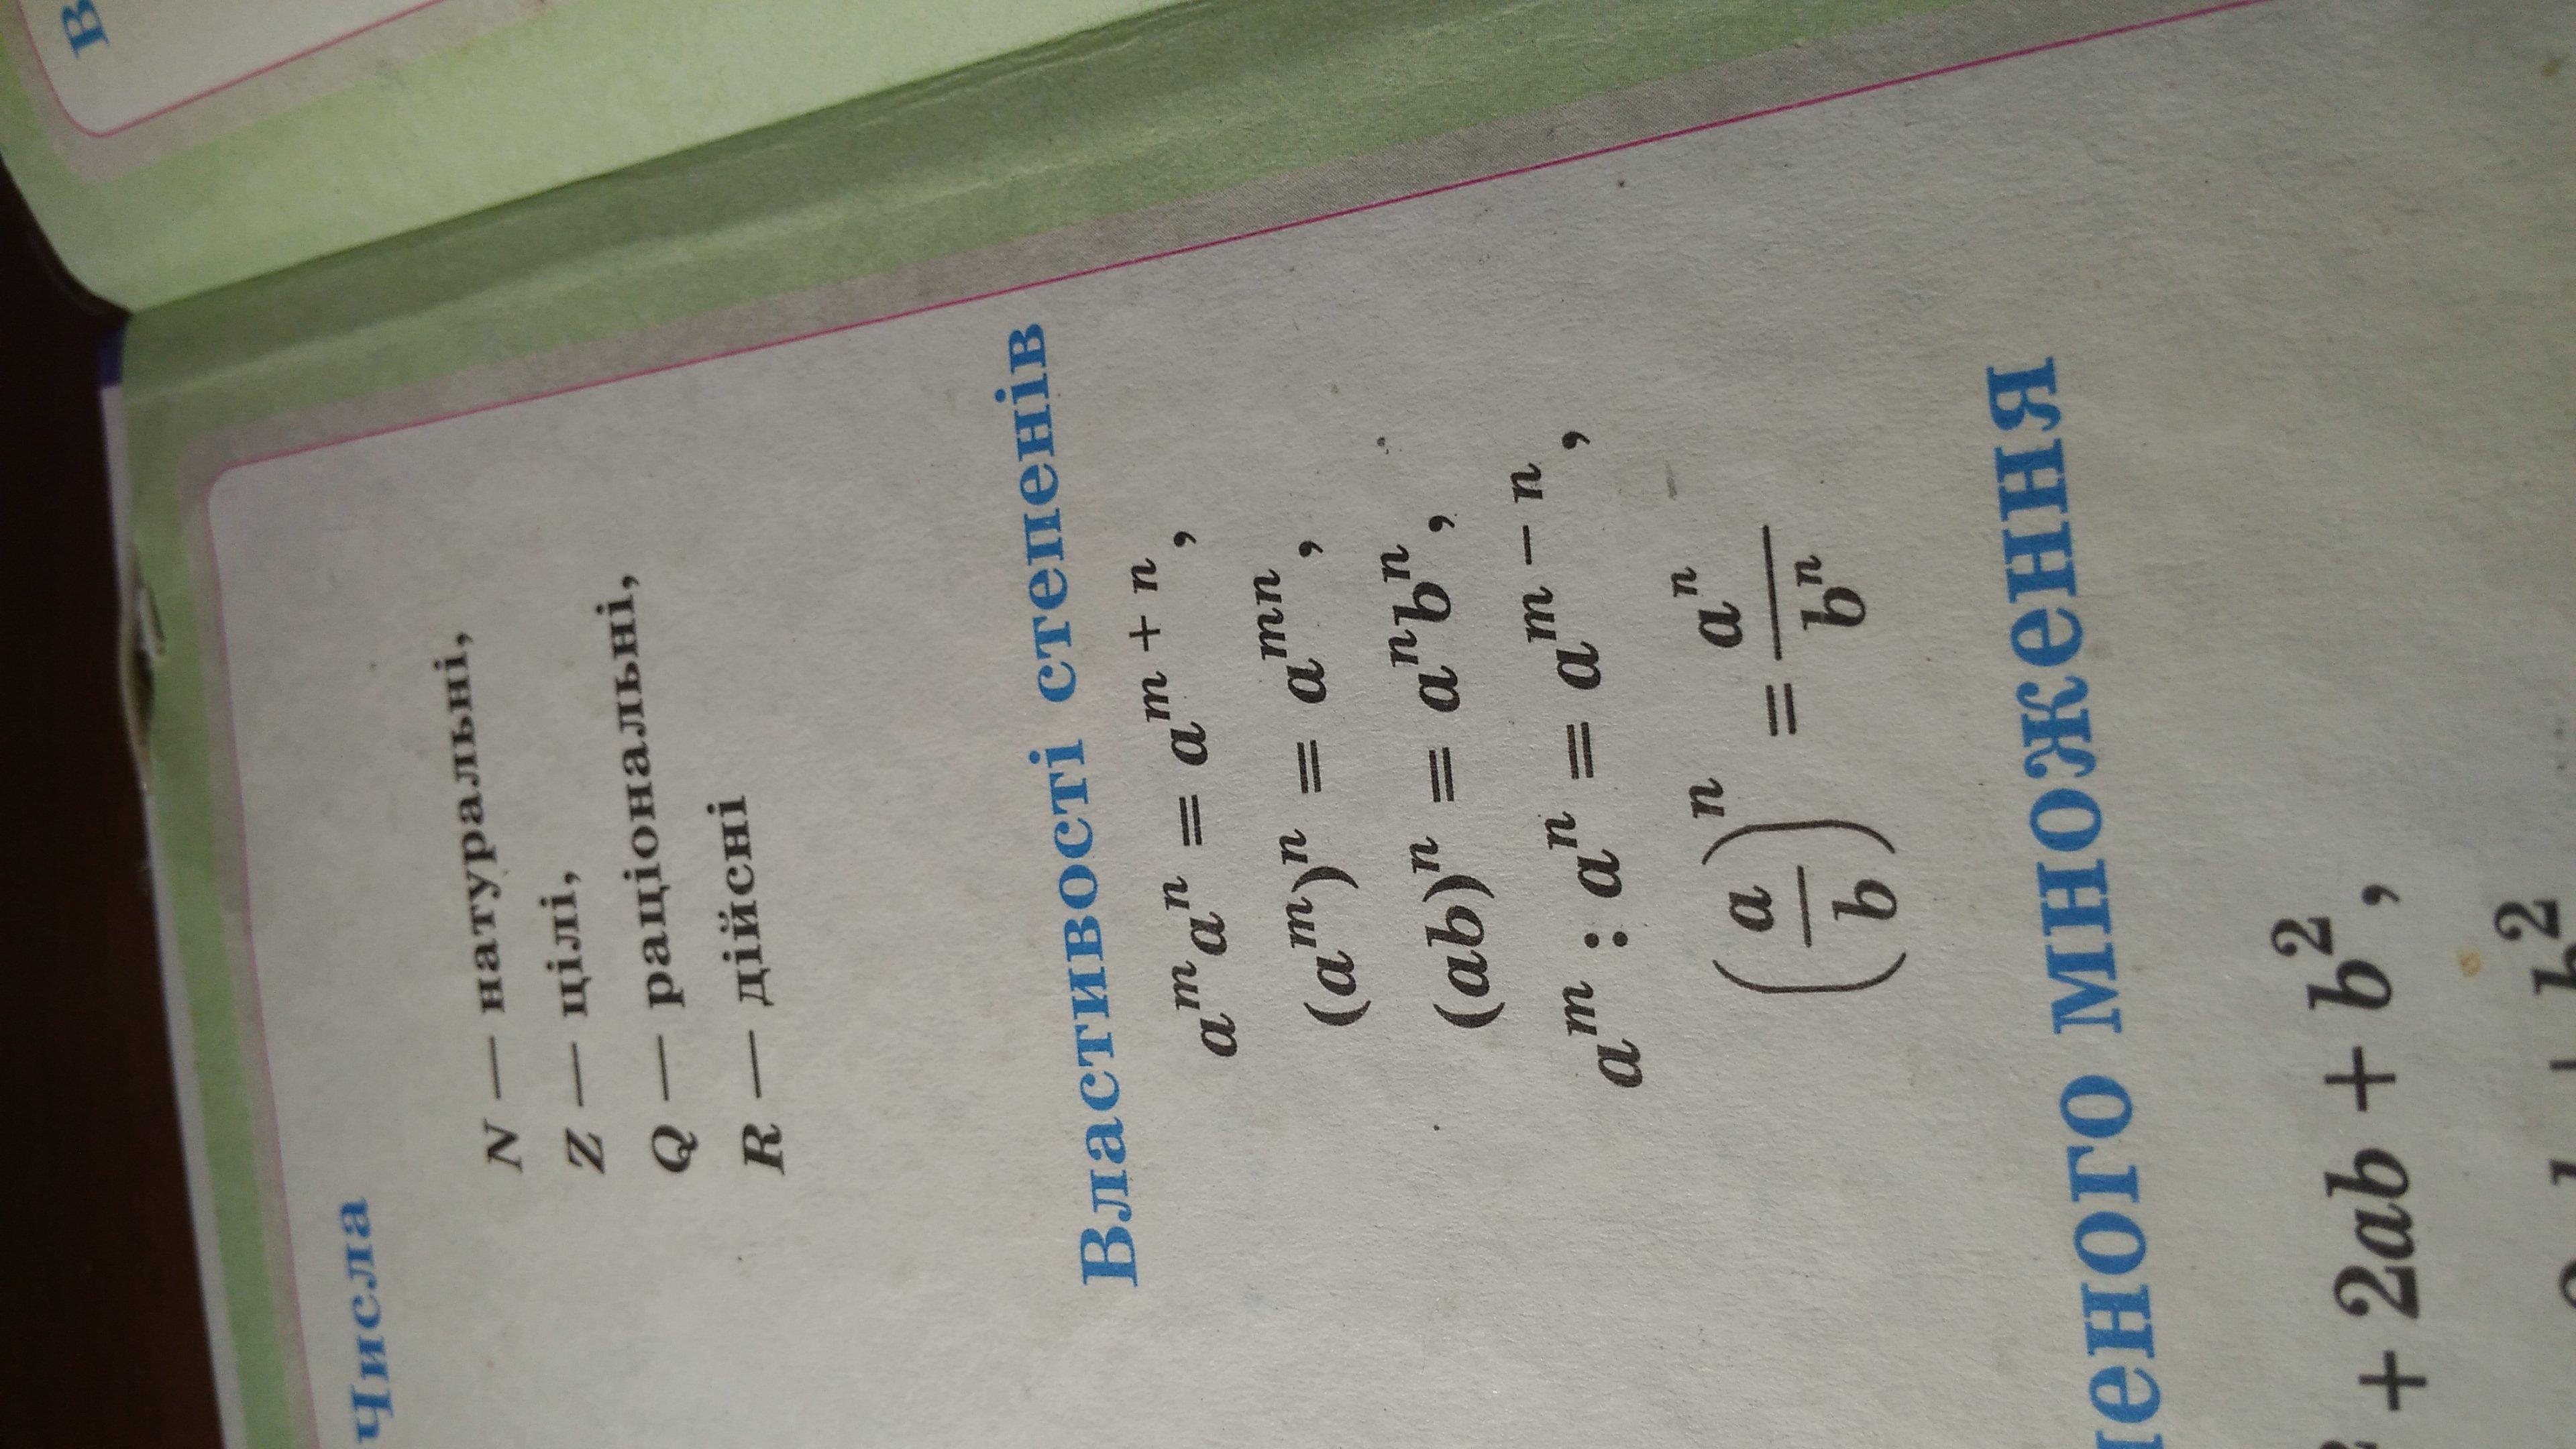 Числа
N — натуральні,
Z — цілі,
Q — раціональні,
R — дійсні
Властивості степенів
aᵐaⁿ = aᵐ⁺ⁿ,
(aᵐ)ⁿ = aᵐⁿ,
(ab)ⁿ = aⁿbⁿ,
aᵐ : aⁿ = aᵐ⁻ⁿ,
(a/b)ⁿ = aⁿ/bⁿ
еного множення
+ 2ab + b²,